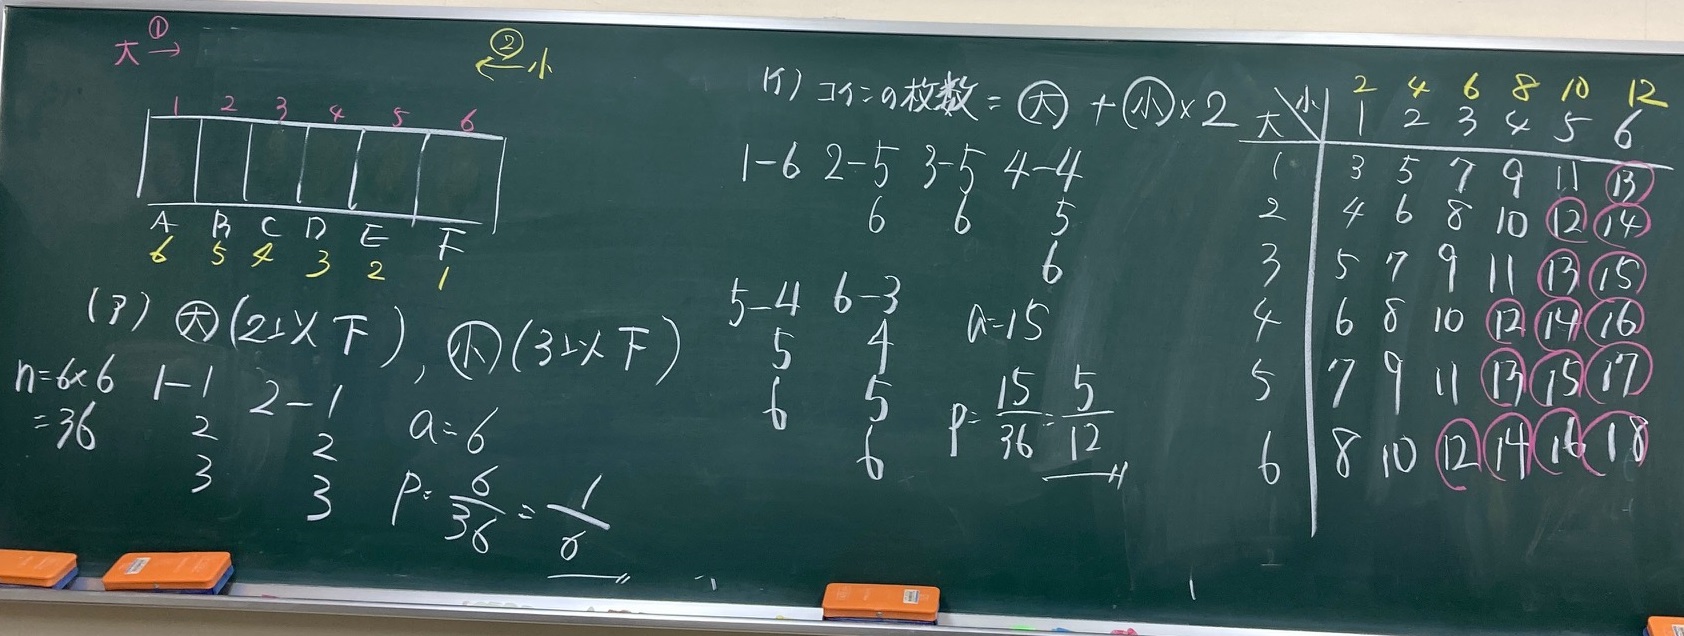 大 ① →
② ← 小
1 2 3 4 5 6
A B C D E F
6 5 4 3 2 1
(ア) 大(2以下), 小(3以下)
n=6×6
=36
1-1 2-1
2 2
3 3
a=6
P=6/36=1/6
(イ) コインの枚数=大+小×2
1-6 2-5 3-5 4-4
6 6 5
6
5-4 6-3
5 4
6 5
6
a=15
P=15/36=5/12
2 4 6 8 10 12
大\小 1 2 3 4 5 6
1 3 5 7 9 11 13
2 4 6 8 10 12 14
3 5 7 9 11 13 15
4 6 8 10 12 14 16
5 7 9 11 13 15 17
6 8 10 12 14 16 18